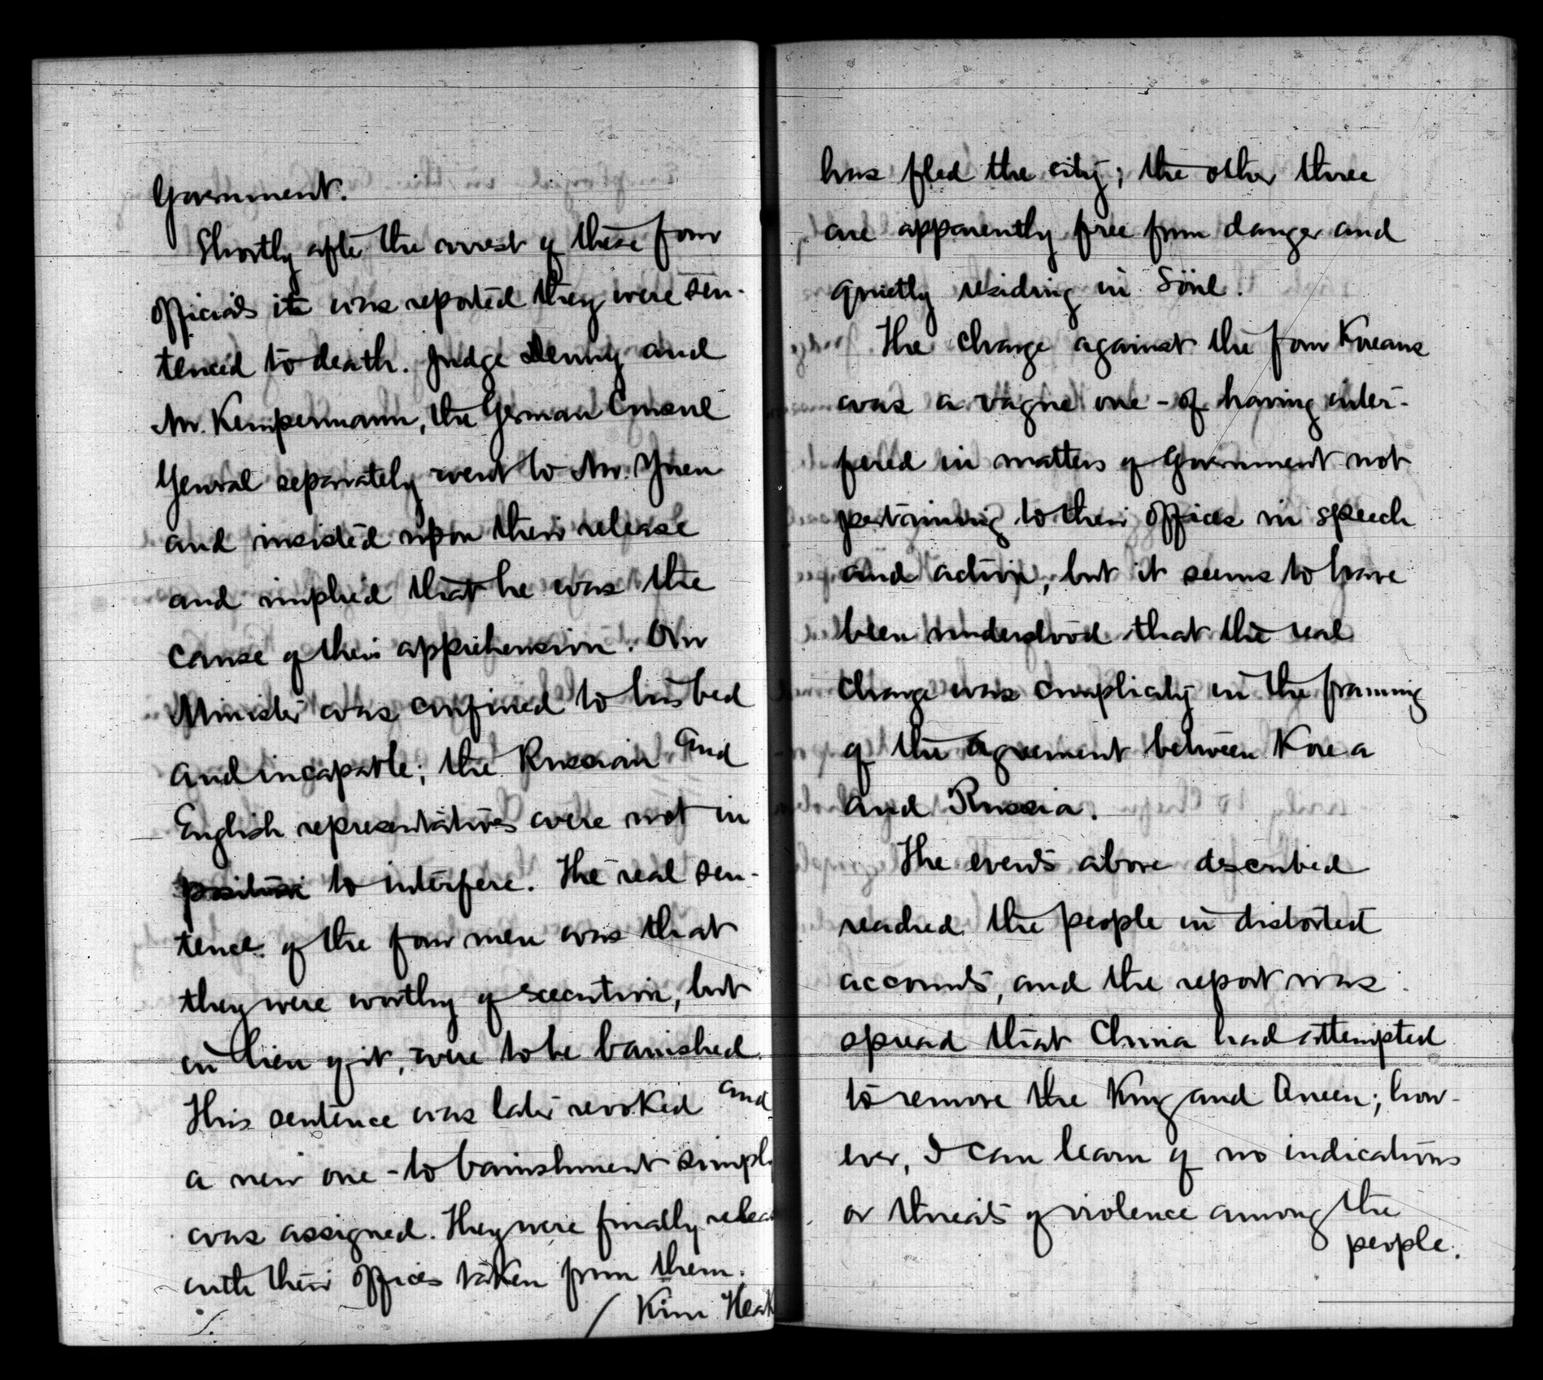 Government.
Shortly after the arrest of these four
officials it was reported they were sen-
tenced to death. Judge Denny and
Mr. Kempermann, the German Consul
General separately went to Mr. Yuen
and insisted upon their release
and implied that he was the
cause of their apprehension. Our
Minister was confined to his bed
and incapable; the Russian and
English representatives were not in
position to interfere. The real sen-
tence of the four men was that
they were worthy of execution, but
in lieu of it, were to be banished.
This sentence was later revoked and
a new one - to banishment simply
was assigned. They were finally releas
with their offices taken from them.
Kim Heak
has fled the city; the other three
are apparently free from danger and
quietly residing in Söul.
The charge against the four Koreans
was a vague one - of having inter-
fered in matters of Government not
pertaining to their offices in speech
and action, but it seems to have
been understood that the real
charge was complicity in the framing
of the agreement between Korea
and Russia.
The events above described
reached the people in distorted
accounts, and the report was
spread that China had attempted
to remove the King and Queen; how-
ever, I can learn of no indications
or threats of violence among the
people.